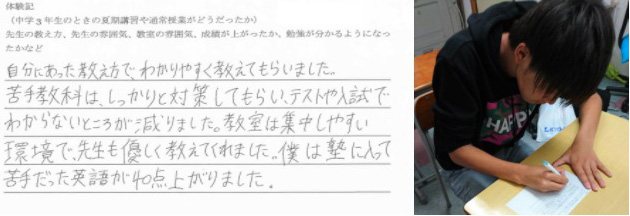 体験記
（中学３年生のときの夏期講習や通常授業がどうだったか）
先生の教え方、先生の雰囲気、教室の雰囲気、成績が上がったか、勉強が分かるようになっ
たかなど
自分にあった教え方で、わかりやすく教えてもらいました。
苦手教科は、しっかりと対策してもらい、テストや入試で
わからないところが減りました。教室は集中しやすい
環境で、先生も優しく教えてくれました。僕は塾に入って
苦手だった英語が40点上がりました。
HAPPY